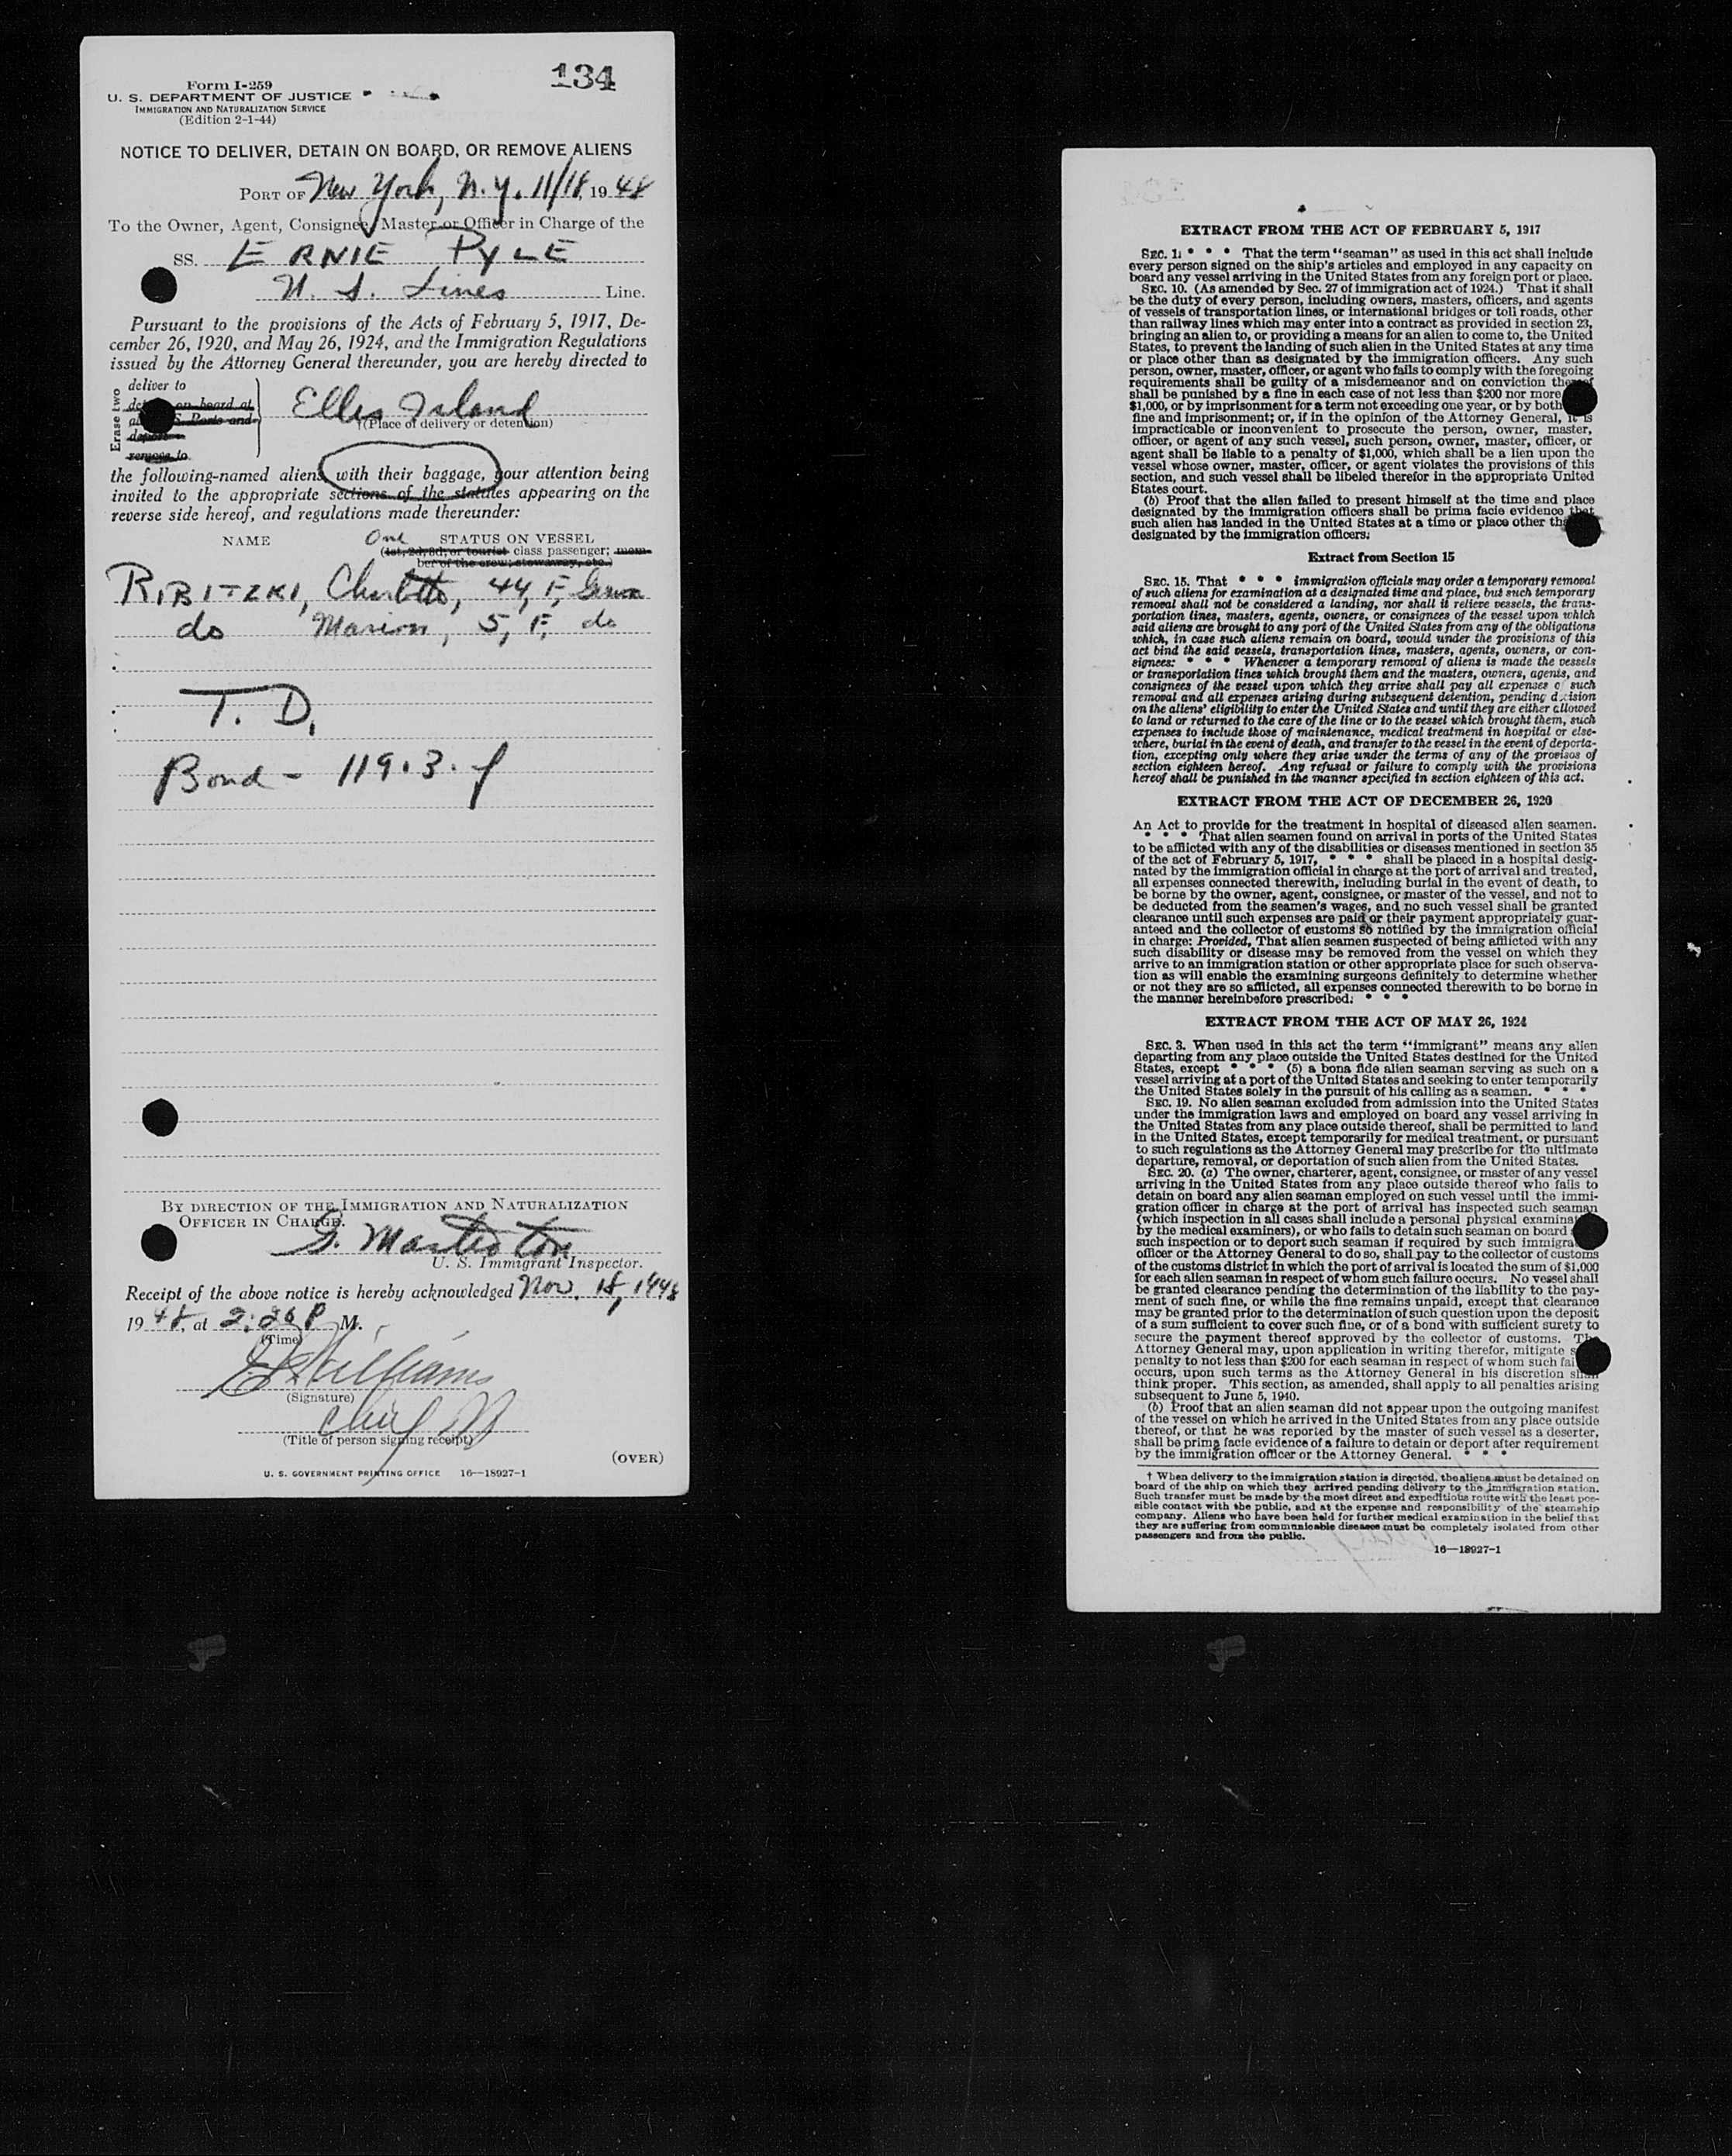 134
Form I-259
U. S. DEPARTMENT OF JUSTICE
IMMIGRATION AND NATURALIZATION SERVICE
(Edition 2-1-44)
NOTICE TO DELIVER, DETAIN ON BOARD, OR REMOVE ALIENS
PORT OF New York, N.Y. 11/18, 19 48
To the Owner, Agent, Consignee, Master or Officer in Charge of the
SS. ERNIE PYLE
U. S. Lines Line.
Pursuant to the provisions of the Acts of February 5, 1917, De-
cember 26, 1920, and May 26, 1924, and the Immigration Regulations
issued by the Attorney General thereunder, you are hereby directed to
Erase two
deliver to
on board at
S. Ports and
deport
remove to
Ellis Island
†(Place of delivery or detention)
the following-named aliens with their baggage, your attention being
invited to the appropriate sections of the statutes appearing on the
reverse side hereof, and regulations made thereunder:
NAME One STATUS ON VESSEL
(1st, 2d, 3d, or tourist class passenger; mem-
ber of the crew; stowaway, etc.)
RIBITZKI, Charlotte, 44, F,
do Marion, 5, F, do
T. D.
Bond - 119.3.f
BY DIRECTION OF THE IMMIGRATION AND NATURALIZATION
OFFICER IN CHARGE.
G.
U. S. Immigrant Inspector.
Receipt of the above notice is hereby acknowledged Nov. 18, 1948
19 48, at 2:20 P M.
(Time)
Williams
(Signature)
Chief
(Title of person signing receipt)
(OVER)
U. S. GOVERNMENT PRINTING OFFICE 16—18927-1
EXTRACT FROM THE ACT OF FEBRUARY 5, 1917
SEC. 1. * * * That the term "seaman" as used in this act shall include
every person signed on the ship's articles and employed in any capacity on
board any vessel arriving in the United States from any foreign port or place.
SEC. 10. (As amended by Sec. 27 of immigration act of 1924.) That it shall
be the duty of every person, including owners, masters, officers, and agents
of vessels of transportation lines, or international bridges or toll roads, other
than railway lines which may enter into a contract as provided in section 23,
bringing an alien to, or providing a means for an alien to come to, the United
States, to prevent the landing of such alien in the United States at any time
or place other than as designated by the immigration officers. Any such
person, owner, master, officer, or agent who fails to comply with the foregoing
requirements shall be guilty of a misdemeanor and on conviction thereof
shall be punished by a fine in each case of not less than $200 nor more
$1,000, or by imprisonment for a term not exceeding one year, or by both
fine and imprisonment; or, if in the opinion of the Attorney General, it is
impracticable or inconvenient to prosecute the person, owner, master,
officer, or agent of any such vessel, such person, owner, master, officer, or
agent shall be liable to a penalty of $1,000, which shall be a lien upon the
vessel whose owner, master, officer, or agent violates the provisions of this
section, and such vessel shall be libeled therefor in the appropriate United
States court.
(b) Proof that the alien failed to present himself at the time and place
designated by the immigration officers shall be prima facie evidence that
such alien has landed in the United States at a time or place other than
designated by the immigration officers.
Extract from Section 15
SEC. 15. That * * * immigration officials may order a temporary removal
of such aliens for examination at a designated time and place, but such temporary
removal shall not be considered a landing, nor shall it relieve vessels, the trans-
portation lines, masters, agents, owners, or consignees of the vessel upon which
said aliens are brought to any port of the United States from any of the obligations
which, in case such aliens remain on board, would under the provisions of this
act bind the said vessels, transportation lines, masters, agents, owners, or con-
signees: * * * Whenever a temporary removal of aliens is made the vessels
or transportation lines which brought them and the masters, owners, agents, and
consignees of the vessel upon which they arrive shall pay all expenses of such
removal and all expenses arising during subsequent detention, pending decision
on the aliens' eligibility to enter the United States and until they are either allowed
to land or returned to the care of the line or to the vessel which brought them, such
expenses to include those of maintenance, medical treatment in hospital or else-
where, burial in the event of death, and transfer to the vessel in the event of deporta-
tion, excepting only where they arise under the terms of any of the provisos of
section eighteen hereof. Any refusal or failure to comply with the provisions
hereof shall be punished in the manner specified in section eighteen of this act.
EXTRACT FROM THE ACT OF DECEMBER 26, 1920
An Act to provide for the treatment in hospital of diseased alien seamen.
* * * That alien seamen found on arrival in ports of the United States
to be afflicted with any of the disabilities or diseases mentioned in section 35
of the act of February 5, 1917, * * * shall be placed in a hospital desig-
nated by the immigration official in charge at the port of arrival and treated,
all expenses connected therewith, including burial in the event of death, to
be borne by the owner, agent, consignee, or master of the vessel, and not to
be deducted from the seamen's wages, and no such vessel shall be granted
clearance until such expenses are paid or their payment appropriately guar-
anteed and the collector of customs so notified by the immigration official
in charge: Provided, That alien seamen suspected of being afflicted with any
such disability or disease may be removed from the vessel on which they
arrive to an immigration station or other appropriate place for such observa-
tion as will enable the examining surgeons definitely to determine whether
or not they are so afflicted, all expenses connected therewith to be borne in
the manner hereinbefore prescribed. * * *
EXTRACT FROM THE ACT OF MAY 26, 1924
SEC. 3. When used in this act the term "immigrant" means any alien
departing from any place outside the United States destined for the United
States, except * * * (5) a bona fide alien seaman serving as such on a
vessel arriving at a port of the United States and seeking to enter temporarily
the United States solely in the pursuit of his calling as a seaman. * * *
SEC. 19. No alien seaman excluded from admission into the United States
under the immigration laws and employed on board any vessel arriving in
the United States from any place outside thereof, shall be permitted to land
in the United States, except temporarily for medical treatment, or pursuant
to such regulations as the Attorney General may prescribe for the ultimate
departure, removal, or deportation of such alien from the United States.
SEC. 20. (a) The owner, charterer, agent, consignee, or master of any vessel
arriving in the United States from any place outside thereof who fails to
detain on board any alien seaman employed on such vessel until the immi-
gration officer in charge at the port of arrival has inspected such seaman
(which inspection in all cases shall include a personal physical examina
by the medical examiners), or who fails to detain such seaman on board
such inspection or to deport such seaman if required by such immigra
officer or the Attorney General to do so, shall pay to the collector of customs
of the customs district in which the port of arrival is located the sum of $1,000
for each alien seaman in respect of whom such failure occurs. No vessel shall
be granted clearance pending the determination of the liability to the pay-
ment of such fine, or while the fine remains unpaid, except that clearance
may be granted prior to the determination of such question upon the deposit
of a sum sufficient to cover such fine, or of a bond with sufficient surety to
secure the payment thereof approved by the collector of customs. The
Attorney General may, upon application in writing therefor, mitigate s
penalty to not less than $200 for each seaman in respect of whom such fai
occurs, upon such terms as the Attorney General in his discretion shall
think proper. This section, as amended, shall apply to all penalties arising
subsequent to June 5, 1940.
(b) Proof that an alien seaman did not appear upon the outgoing manifest
of the vessel on which he arrived in the United States from any place outside
thereof, or that he was reported by the master of such vessel as a deserter,
shall be prima facie evidence of a failure to detain or deport after requirement
by the immigration officer or the Attorney General. * * *
† When delivery to the immigration station is directed, the aliens must be detained on
board of the ship on which they arrived pending delivery to the immigration station.
Such transfer must be made by the most direct and expeditious route with the least pos-
sible contact with the public, and at the expense and responsibility of the steamship
company. Aliens who have been held for further medical examination in the belief that
they are suffering from communicable diseases must be completely isolated from other
passengers and from the public.
16—18927-1